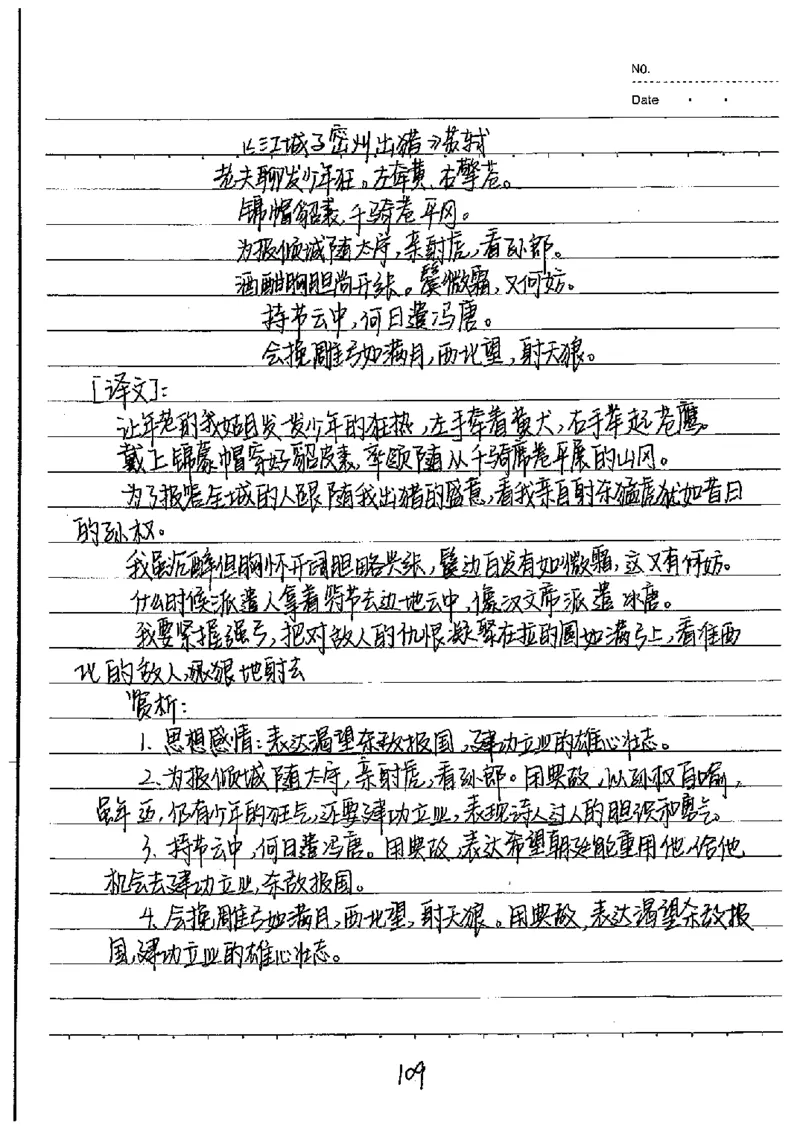 No.
Date
《江城子密州出猎》苏轼
老夫聊发少年狂。左牵黄、右擎苍。
锦帽貂裘,千骑卷平冈。
为报倾城随太守,亲射虎,看孙郎。
酒酣胸胆尚开张。鬓微霜,又何妨。
持节云中,何日遣冯唐。
会挽雕弓如满月,西北望,射天狼。
[译文]:
让年老的我姑且发一发少年的狂热,左手牵着黄犬,右手举起苍鹰。
戴上锦蒙帽穿好貂皮裘,率领随从千骑席卷平展的山冈。
为了报答全城的人跟随我出猎的盛意,看我亲自射杀猛虎犹如昔日
的孙权。
我虽沉醉但胸怀开阔胆略兴张,鬓边白发有如微霜,这又有何妨。
什么时候派遣人拿着符节去边地云中,像汉文帝派遣冯唐。
我要紧握强弓,把对敌人的仇恨凝聚在拉的圆如满弓上,看准西
北的敌人,狠狠地射去
赏析:
1. 思想感情:表达渴望杀敌报国,建功立业的雄心壮志。
2. 为报倾城随太守,亲射虎,看孙郎。用典故,以孙权自喻,
虽年迈,仍有少年的狂气,还要建功立业,表现诗人过人的胆识和勇气。
3. 持节云中,何日遣冯唐。用典故,表达希望朝廷能重用他,给他
机会去建功立业,杀敌报国。
4. 会挽雕弓如满月,西北望,射天狼。用典故,表达渴望杀敌报
国,建功立业的雄心壮志。
109